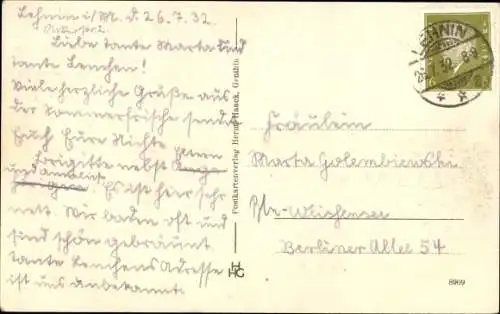 Lehnin i/M. d. 26.7.32.
Liebe Tante Marta und
Tante Lenchen!
Viele herzliche Grüße aus
der Sommerfrische sendet
Euch Eure Nichte
Brigitte nebst Eltern
und
Es ist hier sehr
nett. Wir baden oft und
sind schön gebräunt
Tante Lenchens Adresse
ist uns unbekannt.
Postkartenverlag Herm. Haack, Genthin
HHG
LEHNIN
32. 8-9
Fräulein
Marta Golembiewski
Bln-Weißensee
Berliner Allee 54
8969